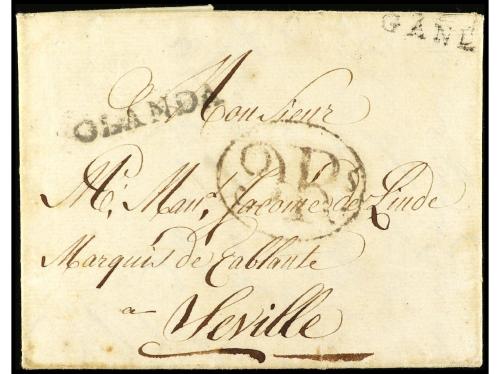 GAND
OLANDA
A Monsieur
2 Rs
Mr. Manl. Jacome de Linde
Marquis de Tablante
a
Seville